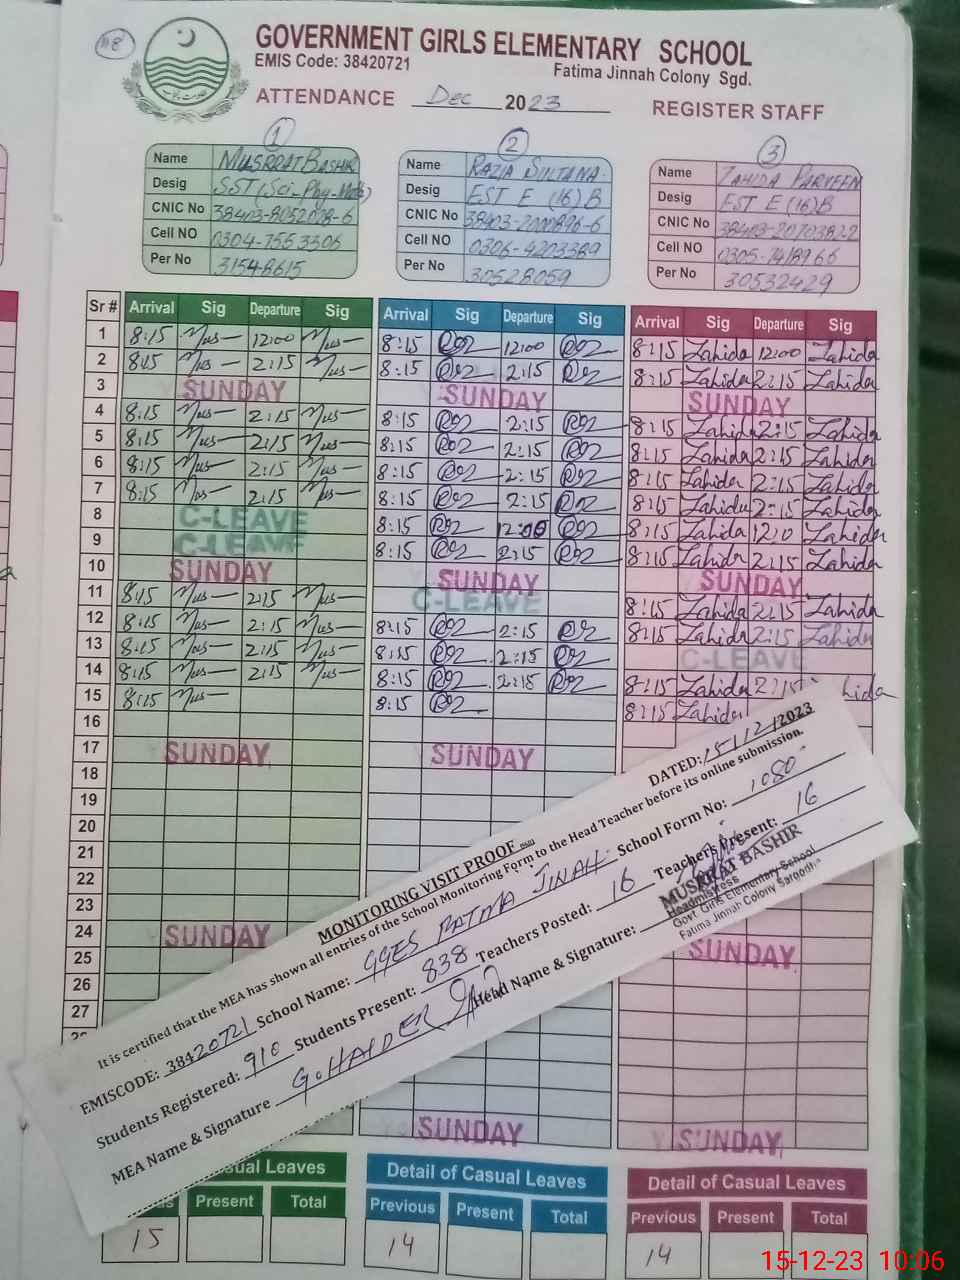 118
GOVERNMENT GIRLS ELEMENTARY SCHOOL
EMIS Code: 38420721
Fatima Jinnah Colony Sgd.
ATTENDANCE Dec 2023 REGISTER STAFF
1 2 3
Name MUSRRAT BASHIR Name RAZIA SULTANA. Name ZAHIDA PARVEEN
Desig SST (Sci_Phy-Math) Desig EST E (16) B Desig EST E (16) B
CNIC No CNIC No CNIC No
Cell NO Cell NO Cell NO
Per No Per No 30528059 Per No 30532429
Sr # Arrival Sig Departure Sig Arrival Sig Departure Sig Arrival Sig Departure Sig
1 8:15 Mus 12:00 Mus 8:15 12:00 8:15 Zahida 12:00 Zahida
2 8:15 Mus 2:15 Mus 8:15 2:15 8:15 Zahida 2:15 Zahida
3 SUNDAY SUNDAY SUNDAY
4 8:15 Mus 2:15 Mus 8:15 2:15 8:15 Zahida 2:15 Zahida
5 8:15 Mus 2:15 Mus 8:15 2:15 8:15 Zahida 2:15 Zahida
6 8:15 Mus 2:15 Mus 8:15 2:15 8:15 Zahida 2:15 Zahida
7 8:15 Mus 2:15 Mus 8:15 2:15 8:15 Zahida 2:15 Zahida
8 C-LEAVE 8:15 12:00 8:15 Zahida 12:0 Zahida
9 C-LEAVE 8:15 2:15 8:15 Zahida 2:15 Zahida
10 SUNDAY SUNDAY SUNDAY
11 8:15 Mus 2:15 Mus C-LEAVE 8:15 Zahida 2:15 Zahida
12 8:15 Mus 2:15 Mus 8:15 2:15 8:15 Zahida 2:15 Zahida
13 8:15 Mus 2:15 Mus 8:15 2:15 C-LEAVE
14 8:15 Mus 2:15 Mus 8:15 2:15 8:15 Zahida 2:15 hida
15 8:15 Mus 8:15 8:15 Zahida
16
17 SUNDAY SUNDAY
18
19
20
21
22
23
24 SUNDAY
25 SUNDAY
26
27
MONITORING VISIT PROOF DATED: 15/12/2023
It is certified that the MEA has shown all entries of the School Monitoring Form to the Head Teacher before its online submission.
EMISCODE: 38420721 School Name: GGES FATMA JINAH School Form No: 1080
Students Registered: 910 Students Present: 838 Teachers Posted: 16 Teachers Present: 16
MEA Name & Signature G. HAIDER Head Name & Signature:
MUSRAT BASHIR
Headmistress
Govt. Girls Elementary School
Fatima Jinnah Colony Sargodha
SUNDAY SUNDAY
sual Leaves Detail of Casual Leaves Detail of Casual Leaves
us Present Total Previous Present Total Previous Present Total
15 14 14
15-12-23 10:06